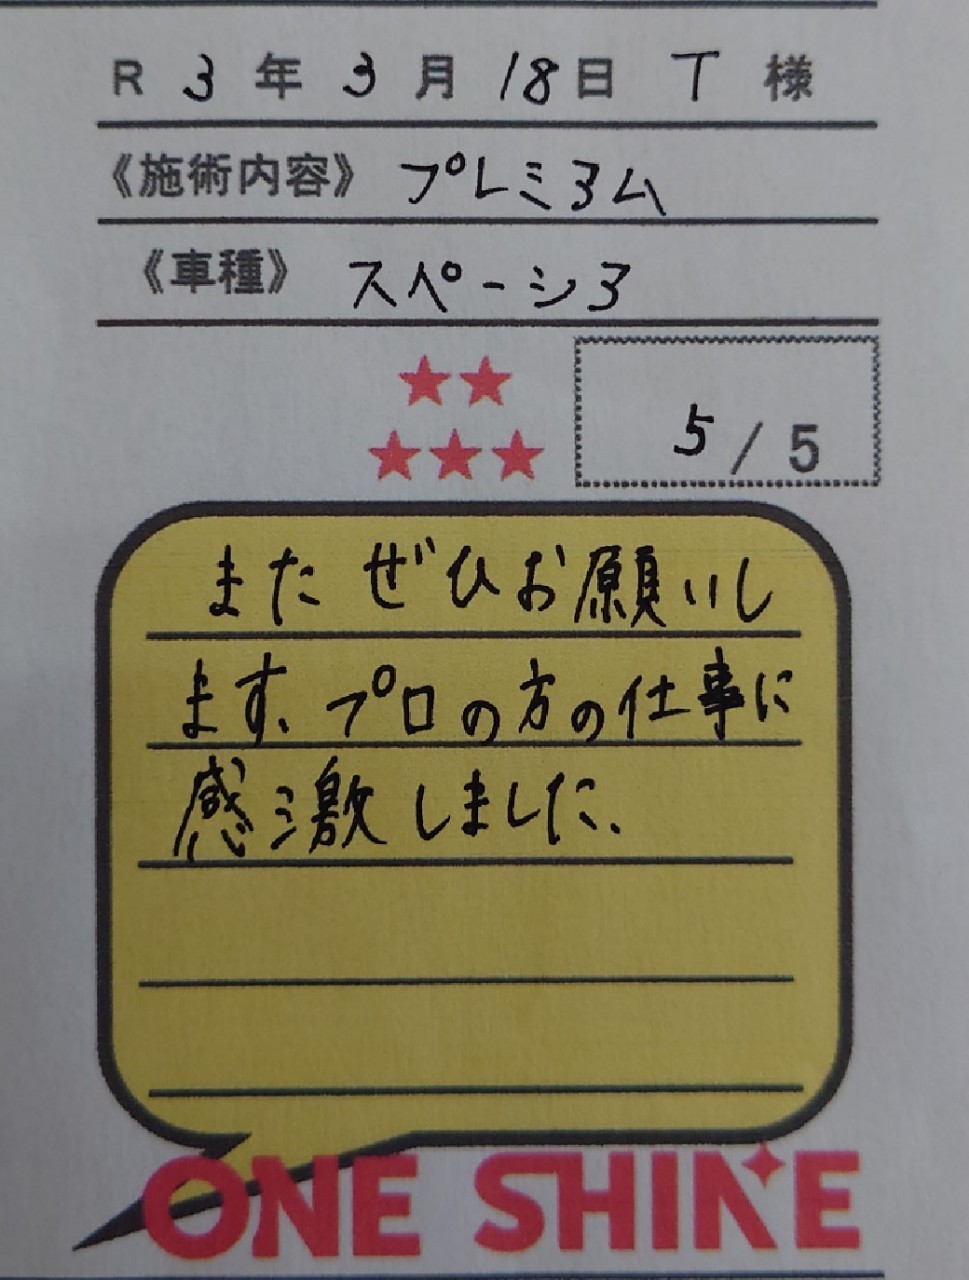 R 3 年 3 月 18 日 T 様
《施術内容》 プレミアム
《車種》 スペーシア
5 / 5
またぜひお願いし
ます、プロの方の仕事に
感激しました、
ONE SHINE